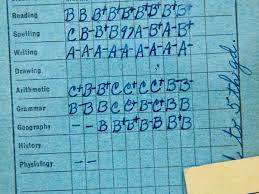 Reading B B B+ B+ B+ B+ B+ B+ B+
Spelling C B- B+ B 97 A- B A- B+
Writing A- A- A- A- A- A- A- A-
Drawing
Arithmetic C+ B- B+ C C+ C C+ B- B-
Grammar B- B B C C+ B- C+ B B
Geography - - B B+ B+ B B- B+ B
History
Physiology - -
to 5th gd.